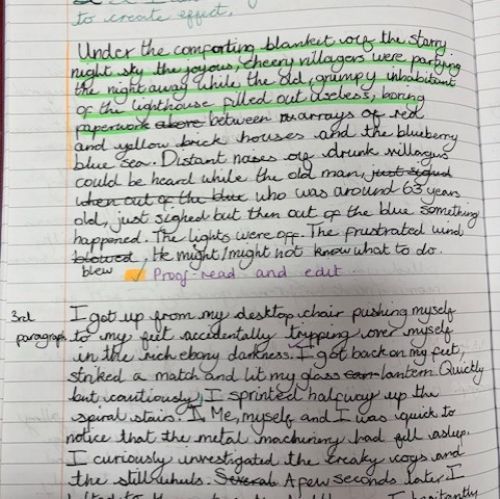 to create effect.
Under the comforting blankit of the starry
night sky the joyous, cheery villagers were partying
the night away while the old, grumpy inhabitant
of the lighthouse filled out useless, boring
paperwork alone between arrays of red
and yellow brick houses and the blueberry
blue sea. Distant noises of drunk villagers
could be heard while the old man, just sighed
when out of the blue who was around 63 years
old, just sighed but then out of the blue something
happened. The lights were off. The frustrated wind
blowed, He might/might not know what to do.
blew ✓ Proof-read and edit
3rd
paragraph
I got up from my desktop chair pushing myself
to my feet accidentally trypping over myself
in the rich ebony darkness. I got back on my feet,
striked a match and lit my glass lantern. Quickly
but cautiously, I sprinted halfway up the
spiral stairs. I, Me, myself and I was quick to
notice that the metal machinery had fell asleep.
I curiously investigated the creaky cogs and
the still wheels. Several A few seconds later I
to the hesitantly